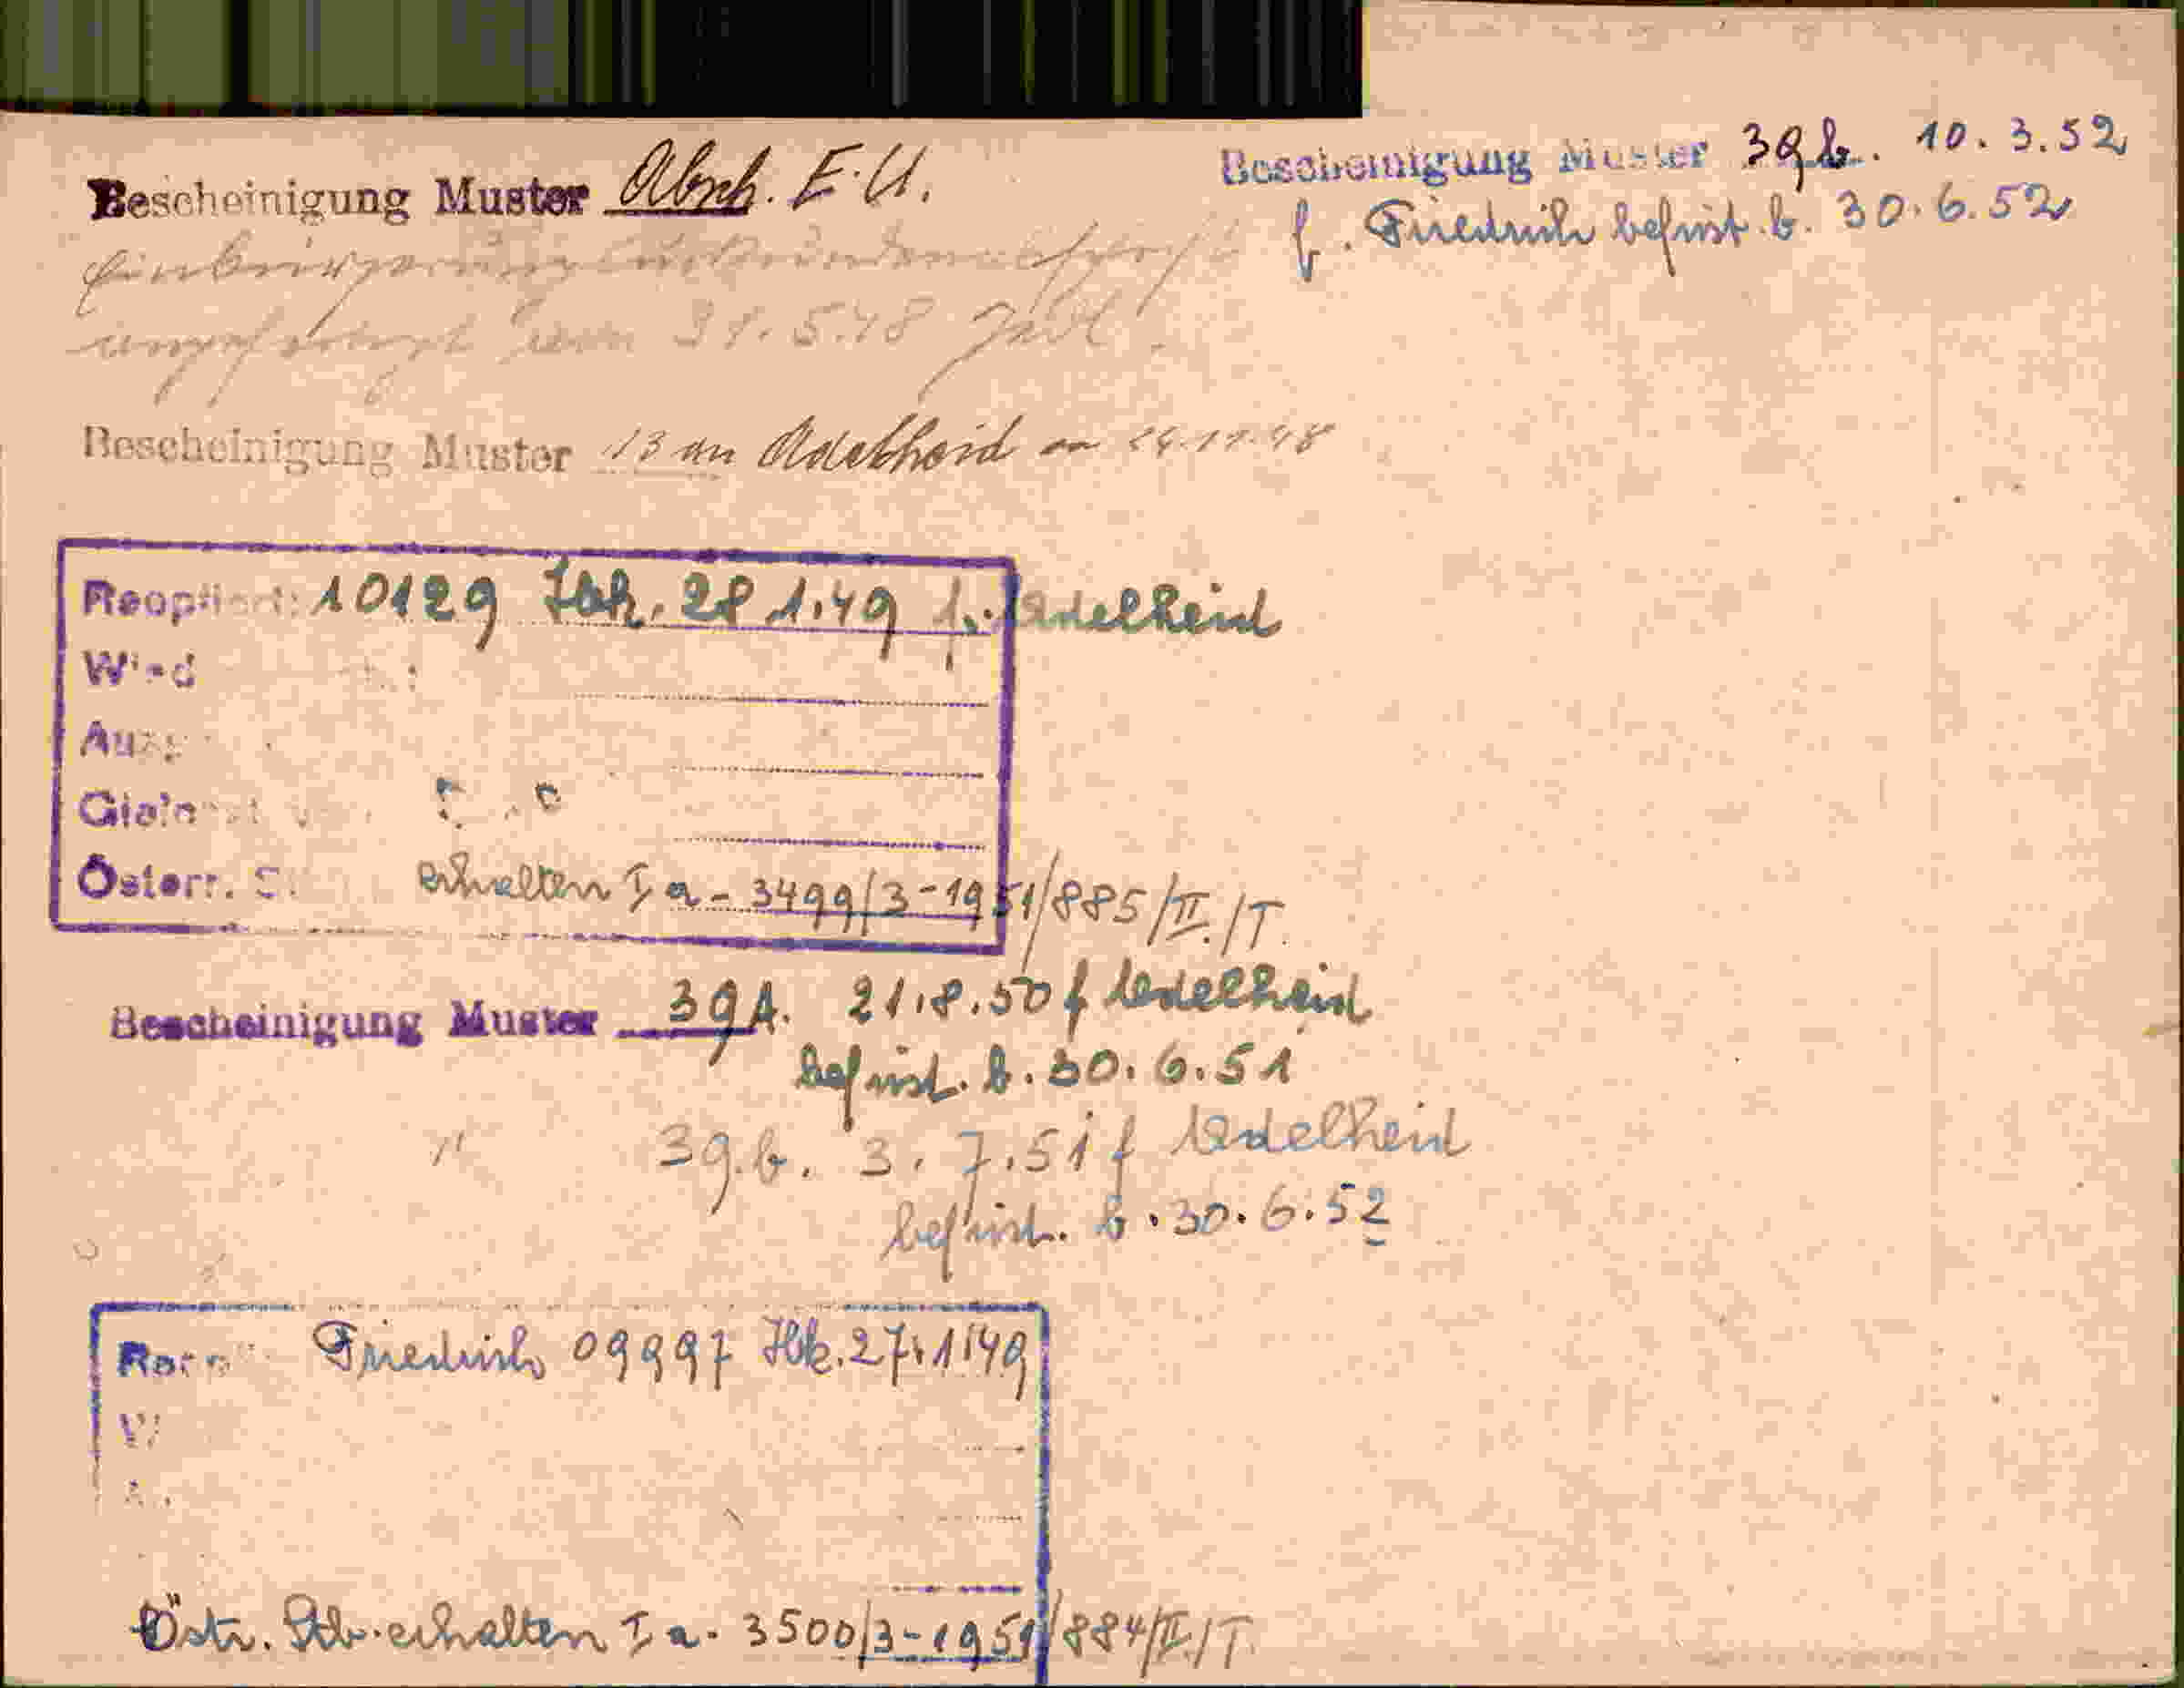 Bescheinigung Muster Absch. E.U.
Einbürgerung
angefragt vom 31.5.48
Bescheinigung Muster 13 an Adelheid am 24.11.48
Reoptiert: 10129 Ibk. 28 1.49 f. Adelheid
Österr. erhalten I a - 3499/3-1951/885/II./T.
Bescheinigung Muster 39A. 21.8.50 f Adelheid
befrist. b. 30.6.51
" 39.b. 3.7.51 f Adelheid
befrist. b. 30.6.52
Friedrich 09997 Ibk. 27.1.49
Östr. Stb. erhalten I a. 3500/3-1951/884/II./T.
Bescheinigung Muster 39b. 10.3.52
f. Friedrich befrist. b. 30.6.52